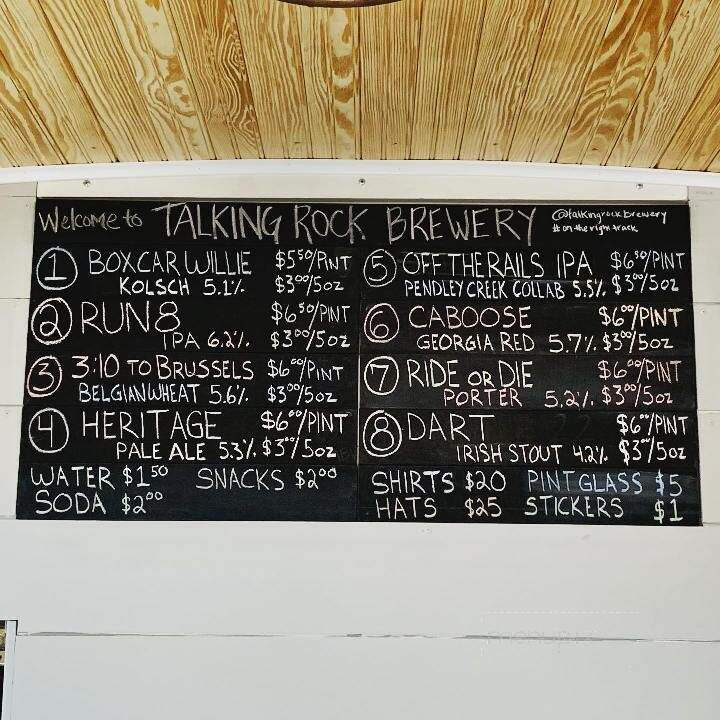 Welcome to TALKING ROCK BREWERY
@talkingrockbrewery
#ontherighttrack
1 BOXCAR WILLIE $5.50/PINT
KOLSCH 5.1% $3.00/5oz
2 RUN 8 $6.50/PINT
IPA 6.2% $3.00/5oz
3 3:10 TO BRUSSELS $6.00/PINT
BELGIAN WHEAT 5.6% $3.00/5oz
4 HERITAGE $6.00/PINT
PALE ALE 5.3% $3.00/5oz
WATER $1.50 SNACKS $2.00
SODA $2.00
5 OFF THE RAILS IPA $6.50/PINT
PENDLEY CREEK COLLAB 5.5% $3.00/5oz
6 CABOOSE $6.00/PINT
GEORGIA RED 5.7% $3.00/5oz
7 RIDE OR DIE $6.00/PINT
PORTER 5.2% $3.00/5oz
8 DART $6.00/PINT
IRISH STOUT 4.2% $3.00/5oz
SHIRTS $20 PINT GLASS $5
HATS $25 STICKERS $1